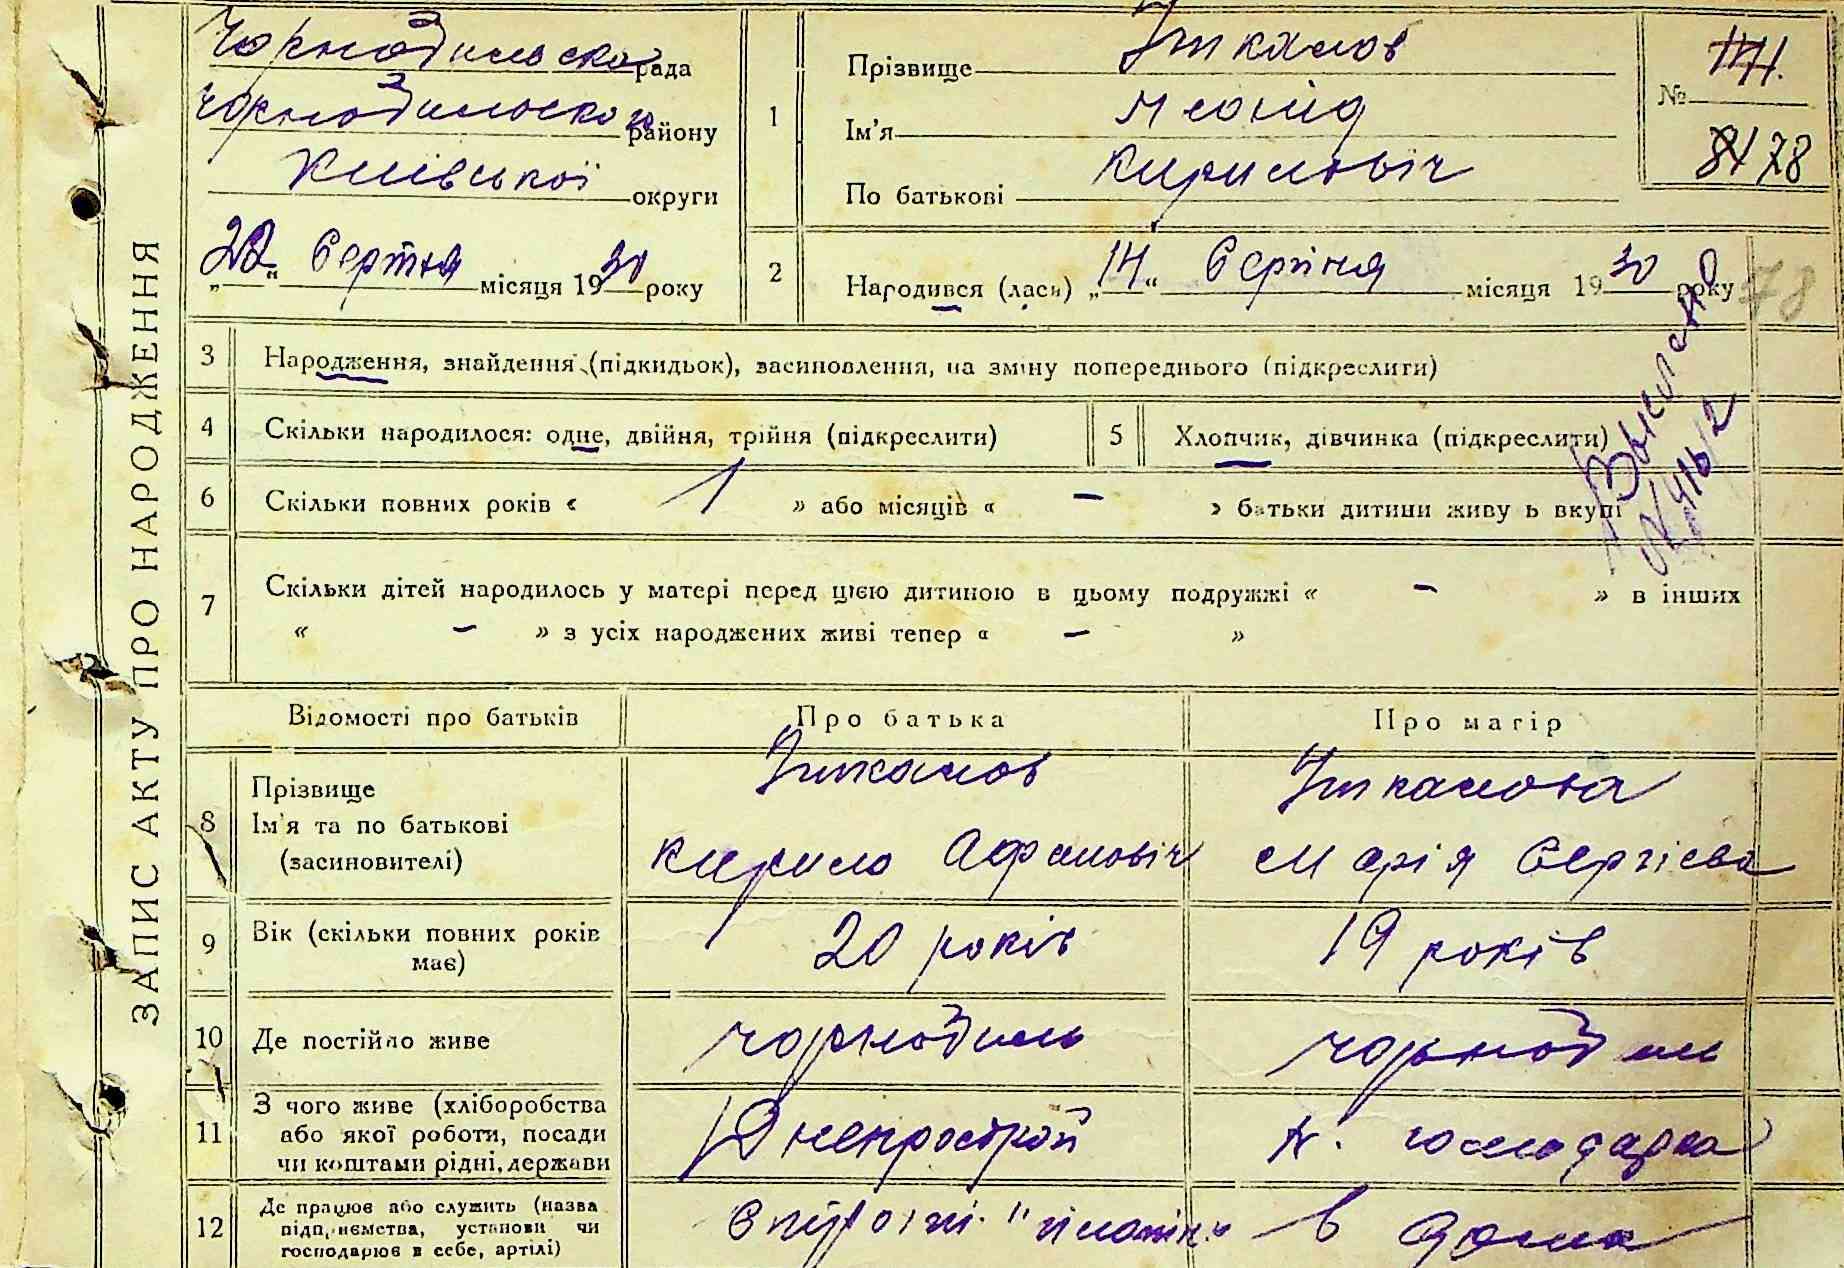 ЗАПИС АКТУ ПРО НАРОДЖЕННЯ
Чорнобильска рада
Чорнобильского району
Київської округи
„22“ Серпня місяця 1930 року
1
Прізвище
Ім'я Леонід
По батькові Кирилович
№ 171.
81 78
2
Народився (лася) „14“ Серпня місяця 1930 року
78
3 Народження, знайдення (підкидьок), засиновлення, на зміну попереднього (підкреслити)
4 Скільки народилося: одне, двійня, трійня (підкреслити)
5 Хлопчик, дівчинка (підкреслити)
6 Скільки повних років « 1 » або місяців « – » батьки дитини живуть вкупі
7 Скільки дітей народилось у матері перед цією дитиною в цьому подружжі « – » в інших
« – » з усіх народжених живі тепер « – »
Відомості про батьків Про батька Про матір
8 Прізвище
Ім'я та по батькові
(засиновителі)
Кирило Марія Сергієва
9 Вік (скільки повних років має) 20 років 19 років
10 Де постійно живе Чорнобиль Чорнобиль
11 З чого живе (хліборобства
або якої роботи, посади
чи коштами рідні, держави
Днепрострой
12 Де працює або служить (назва
підприємства, установи чи
господарює в себе, артілі)
в дома